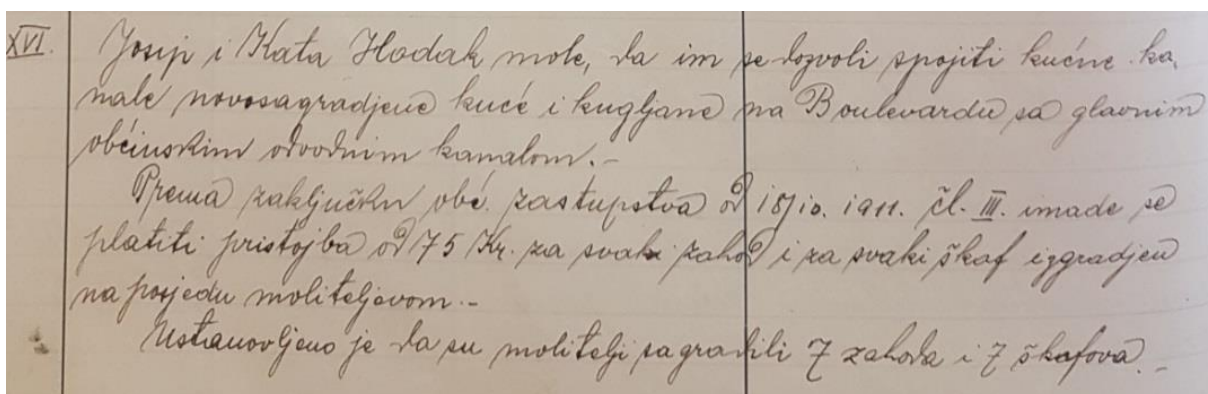 XVI. Josip i Kata Hodak mole, da im se dozvoli spojiti kućne ka-
nale novosagradjene kuće i kugljane na Boulevardu sa glavnim
općinskim odvodnim kanalom. -
Prema zaključku obć. zastupstva od 18/10. 1911. čl. III. imade se
platiti pristojba od 75 Kr. za svaki zahod i za svaki škaf izgradjen
na posjedu moliteljevom. -
Ustanovljeno je da su molitelji sagradili 7 zahoda i 7 škafova. -